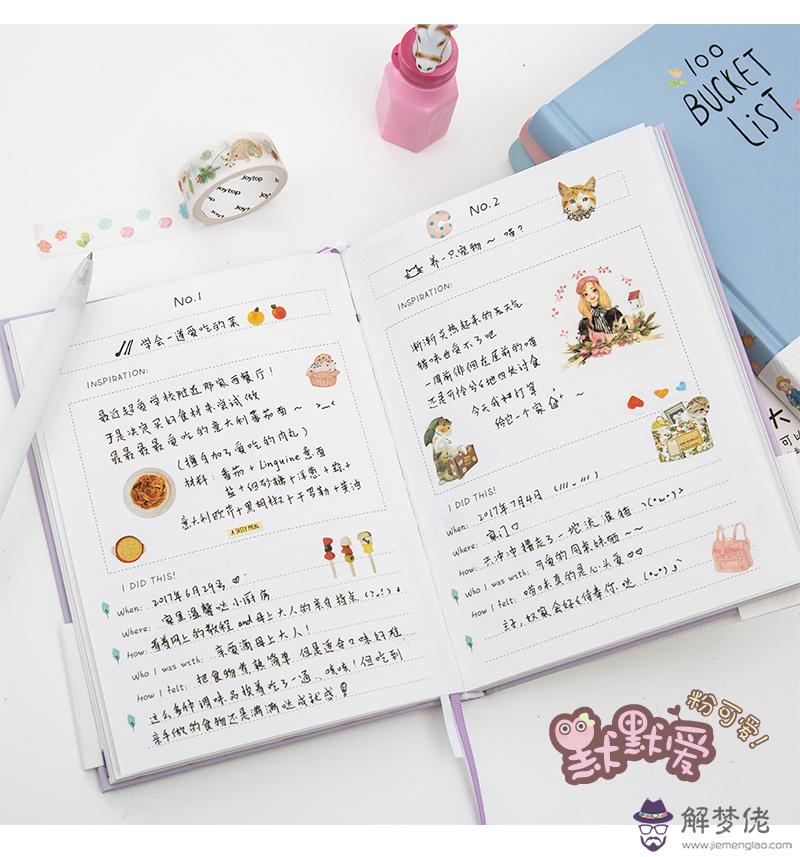 100
BUCKET
LiST
Joytop
Joytop
No.1
学会一道爱吃的菜
INSPIRATION:
最近超爱学校附近那家西餐厅!
于是决定买的食材来尝试做
最最最最爱吃的意大利番茄面~ >﹏<
(擅自加了爱吃的肉丸)
材料: 番茄+Linguine意面
盐+细砂糖+洋葱+蒜+
意大利欧芹+黑胡椒+干罗勒+黄油
A TASTY MEAL
I DID THIS!
When: 2017年6月29号
Where: 家里温馨哒小厨房
How: 看着网上的教程and母上大人的亲自指点
Who I was with: 亲爱滴母上大人!
How I felt: 把食物煮熟简单 但是适合口味好难
这么多种调味品挨着吃了一遍,咳咳!但吃到
亲手做的食物还是满满哒成就感!
No.2
养一只宠物~ 喵?
INSPIRATION:
渐渐炎热起来的天气
猫咪也受不了吧
一周前徘徊在屋前的喵
还是可怜兮兮地四处讨食
今天我打算
给它一个家+ ~
I DID THIS!
When: 2017年7月4日
Where: 家门口
How: 天冲冲撞走了一蛇流浪猫
Who I was with: 可爱的同桌妹妹~~
How I felt: 喵咪真的是心头爱♡♡
主子,奴家会好好侍奉你哒
可以
默默爱
粉可爱!
解梦佬
www.jiemenglao.com